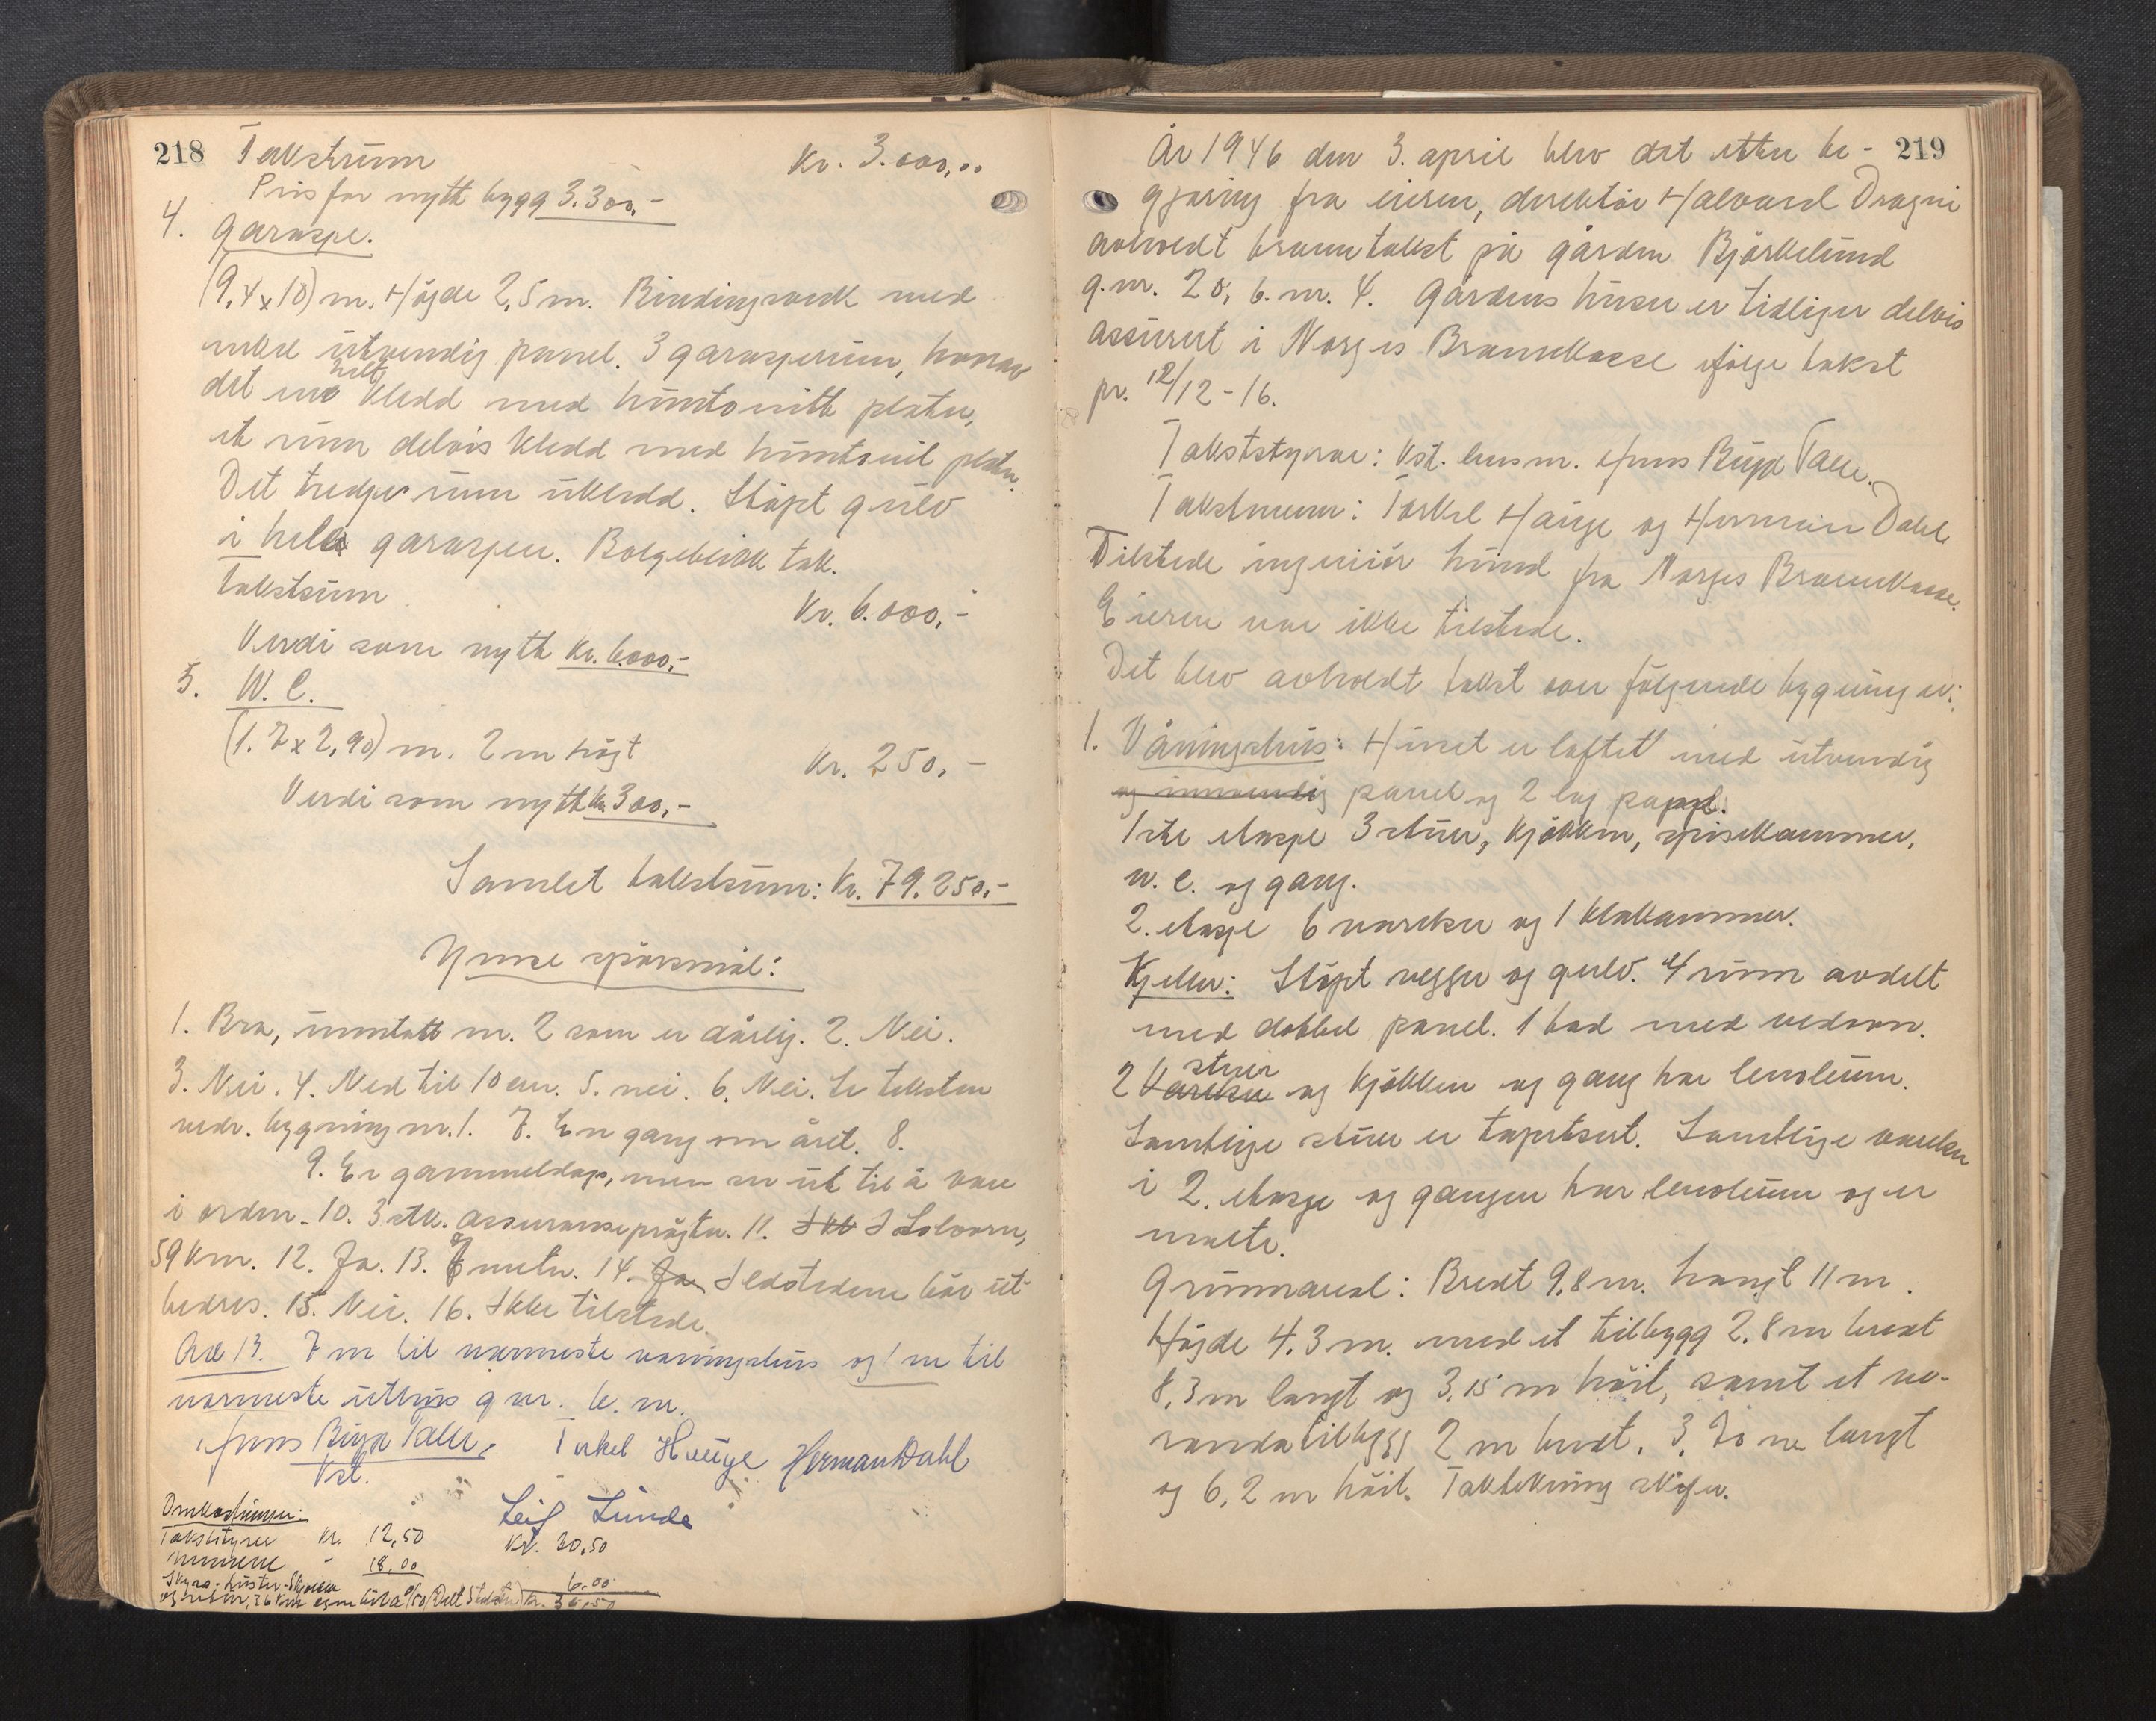 218 Takstsum Kr. 3.000,00
Pris for nytt bygg 3.300,-
4. Garasje.
(9,4 x 10) m. Højde 2,5 m. Bindingsverk med
enkel utvendig panel. 3 garasjerum, hvorav
det ene helt kledd med huntonitt plater,
et rum delvis kledd med huntonit plater.
Det tredje rum ukledd. Støpt gulv
i hele garasjen. Bølgeblikk tak.
Takstsum Kr. 6.000,-
Verdi som nytt Kr. 6.000,-
5. W. C.
(1.7 x 2,90) m. 2 m högt Kr. 250,-
Verdi som nytt kr 300,-
Samlet takstsum: Kr. 79.250.-
Ymse spörsmål:
1. Bra, unntatt nr. 2 som er dårlig. 2. Nei.
3. Nei. 4. Ned til 10 cm. 5. nei. 6. Nei. Se teksten
vedr. bygning nr. 1. 7. En gang om året. 8.
9. Er gammeldags, men ser ut til å være
i orden. 10. 3 stk. assuransesprøjter. 11. Ikk I Solvorn,
59 km. 12. Ja. 13. 6 meter. 14. Ja Ildstedene bör ut-
bedres. 15. Nei. 16. Ikke tilstede.
Ad 13. 7 m til nærmeste våningshus og 1 m til
nærmeste uthus g nr. b. nr.
Jens Bugge Talle, Torkel Hauge Herman Dahl
Kst.
Leif Lunde
Omkostninger:
Takststyrer Kr. 12,50 Kr. 30,50
mennene - 18,00
Skyss - Luster - Skjolden 6,00
og retur, 26 km egen bil à 0/50 (Delt Kr. 36,50
År 1946 den 3. april blev det etter be- 219
gjæring fra eieren, direktör Halvard Dragni
avholdt branntakst på gården Björkelund
g. nr. 20, b. nr. 4. Gårdens huser er tidliger delvis
assurert i Norges Brannkasse ifölge takst
pr. 12/12-16.
Takststyrer: Kst. lensm. Jens Bugge Talle.
Takstmenn: Torkel Hauge og Herman Dahl
Tilstede ingeniör Lund fra Norges Brannkasse.
Eieren var ikke tilstede.
Det blev avholdt takst over fölgende bygninger:
1. Våningshus: Huset er laftet med utvendig
og innvendig panel og 2 lag papp.
1ste etasje 3 stuer, kjökken, spisekammer,
w. c. og gang.
2. etasje 6 værelser og 1 kleskammer.
Kjeller: Stöpt vegger og gulv. 4 rum avdelt
med dobbel panel. 1 bad med vedovn.
2 værelser stuer og kjökken og gang har lenoleum.
Samtlige stuer er tapetsert. Samtlige værelser
i 2. etasje og gangen har lenoleum og er
malte.
Grunnareal: Bredt 9,8 m. langt 11 m.
Højde 4.3 m. med et tilbygg 2.8 m bredt
8,3 m langt og 3,15 m höit, samt et ve-
randatilbygg 2 m bredt, 3,70 m langt
og 6,2 m höit. Taktekning skifer.